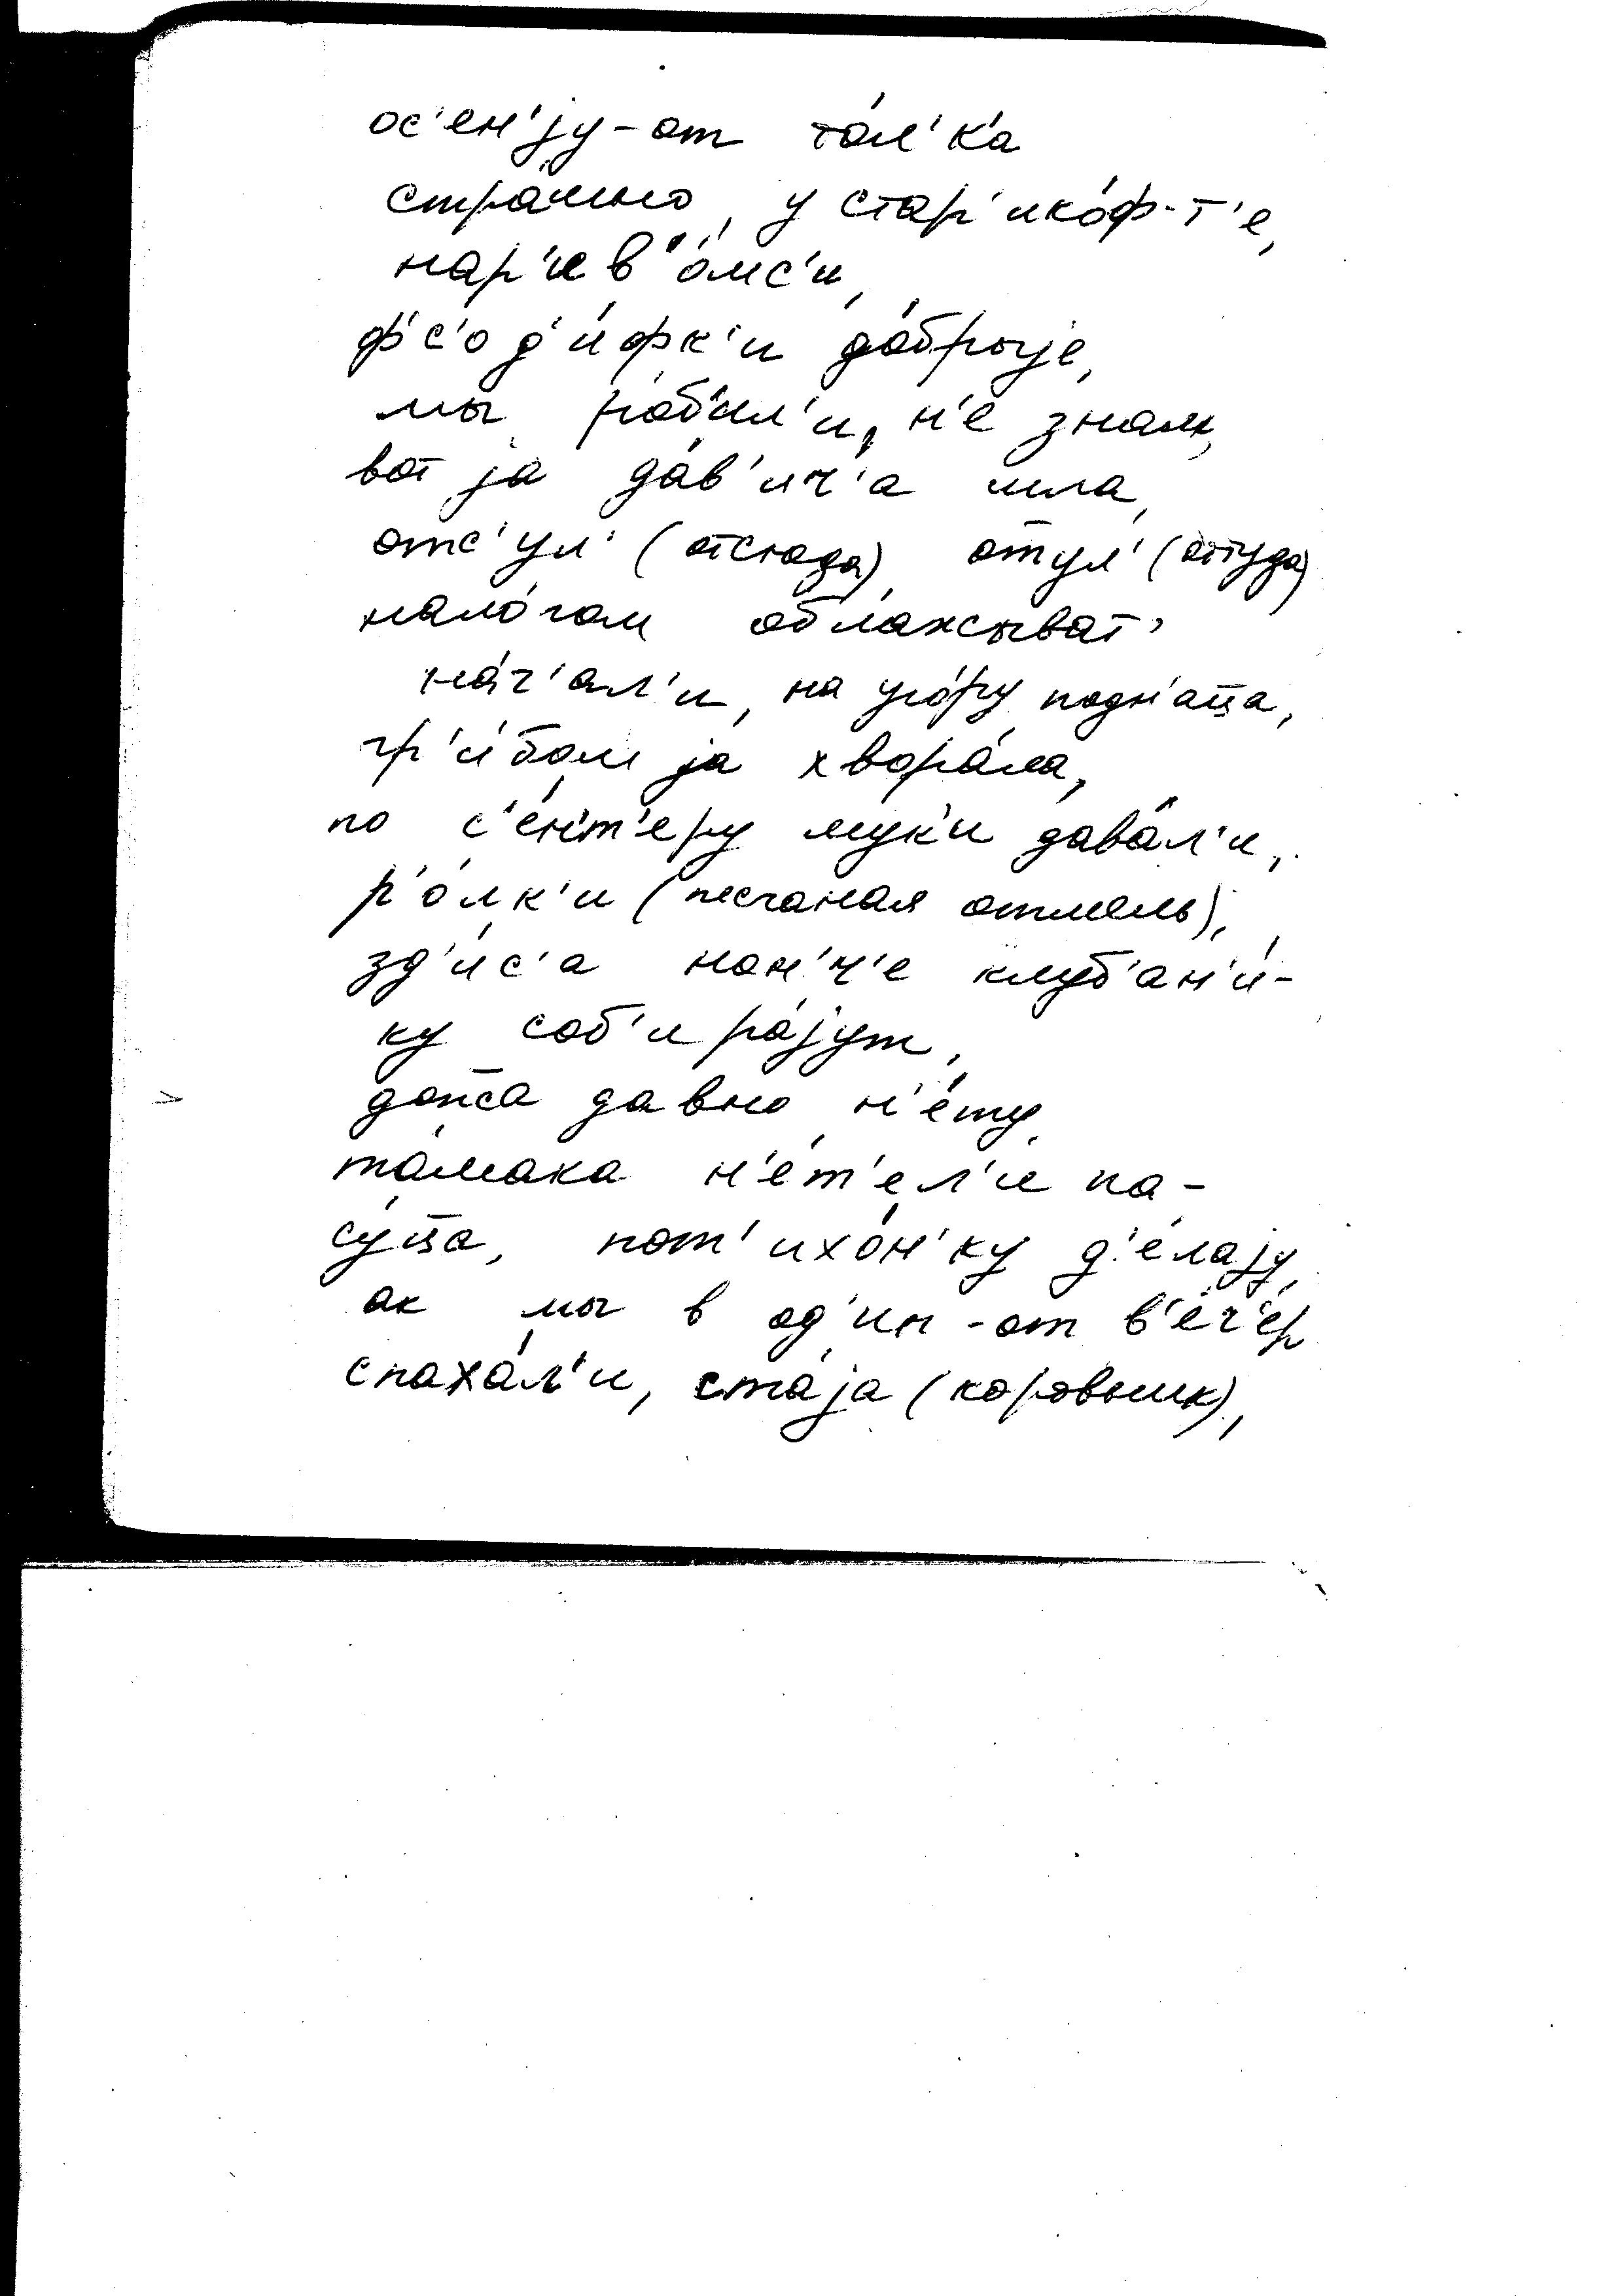 ос'ен'jу-от то́л'к'а
стра́шно, у стар'ико́ф-т'е,
нар'ев'о́мс'и,
ф'с'о д'и́фк'и до́брыjе,
мы роб'и́л'и, н'е знали,
вот jа да́в'ич'а шла,
отс'ул' (отсюда), оттул' (оттуда)
нало́гам обла́жыват'
на́ч'ал'и, на уго́ру подн'а́ца,
гр'и́бом jа хвора́ла,
по с'е́нт'еру мук'и дава́л'и,
р'о́лк'и (песчаная отмель),
зд'и́с'а нон'ч'е клуб'ан'и́-
ку соб'ира́jут,
допса давно н'е́ту,
та́мака н'е́т'ел'и па-
су́ца, пот'ихо́н'ку д'е́лаjу,
ак мы в од'ин-от в'е́ч'ер
спаха́л'и, ста́jа (коровник),